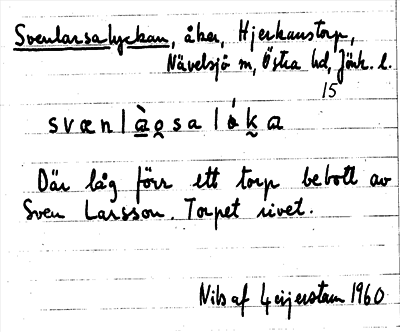 Svenlarsalyckan, åker, Hjerkanstorp,
Nävelsjö sn, Östra hd, Jönk. l.
15
Där låg förr ett torp bebott av
Sven Larsson. Torpet rivet.
Nils af Geijerstam 1960